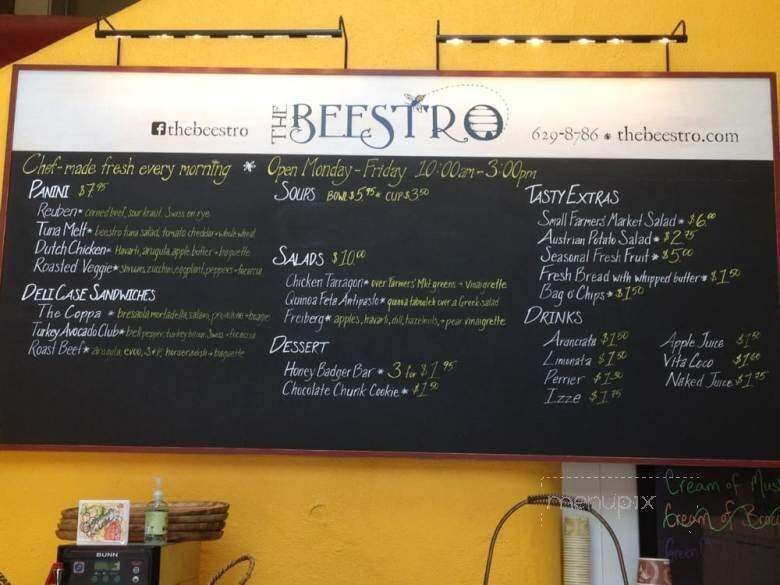 thebeestro
THE BEESTRO
629-8786 • thebeestro.com
Chef-made fresh every morning * Open Monday-Friday 10:00am-3:00pm
PANINI $7.95
Reuben • corned beef, sour kraut, Swiss on rye
Tuna Melt • beestro tuna salad, tomato, cheddar • whole wheat
Dutch Chicken • Havarti, arugula, apple butter • baguette
Roasted Veggie • shrooms, zucchini, eggplant, peppers • focaccia
DELI CASE SANDWICHES
The Coppa • bresaola, mortadella, salami, provolone • hoagie
Turkey Avocado Club • bell pepper, turkey bacon, Swiss • focaccia
Roast Beef • arugula, evoo, S+P, horseradish • baguette
SOUPS BOWL $5.95 • CUP $3.50
SALADS $10.00
Chicken Tarragon • over Farmers' Mkt greens • vinaigrette
Quinoa Feta Antipasto • quinoa tabouleh over a Greek salad
Freiberg • apples, havarti, dill, hazelnuts, • pear vinaigrette
DESSERT
Honey Badger Bar • 3 for $1.95
Chocolate Chunk Cookie • $1.50
TASTY EXTRAS
Small Farmers' Market Salad • $6.00
Austrian Potato Salad • $2.75
Seasonal Fresh Fruit • $5.00
Fresh Bread with whipped butter • $1.50
Bag o' Chips • $1.50
DRINKS
Aranciata $1.50
Limonata $1.50
Perrier $1.50
Izze $1.75
Apple Juice $1.50
Vita Coco $1.60
Naked Juice $1.75
menupix
Cream of
Cream of
Green
BUNN